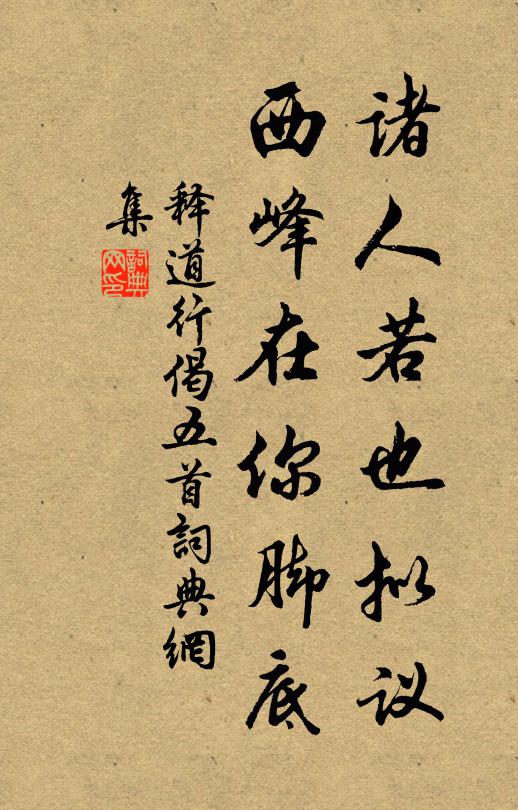 诸人若也拟议
西峰在你脚底
释道行偈五首詞典網
集
詞典
网印